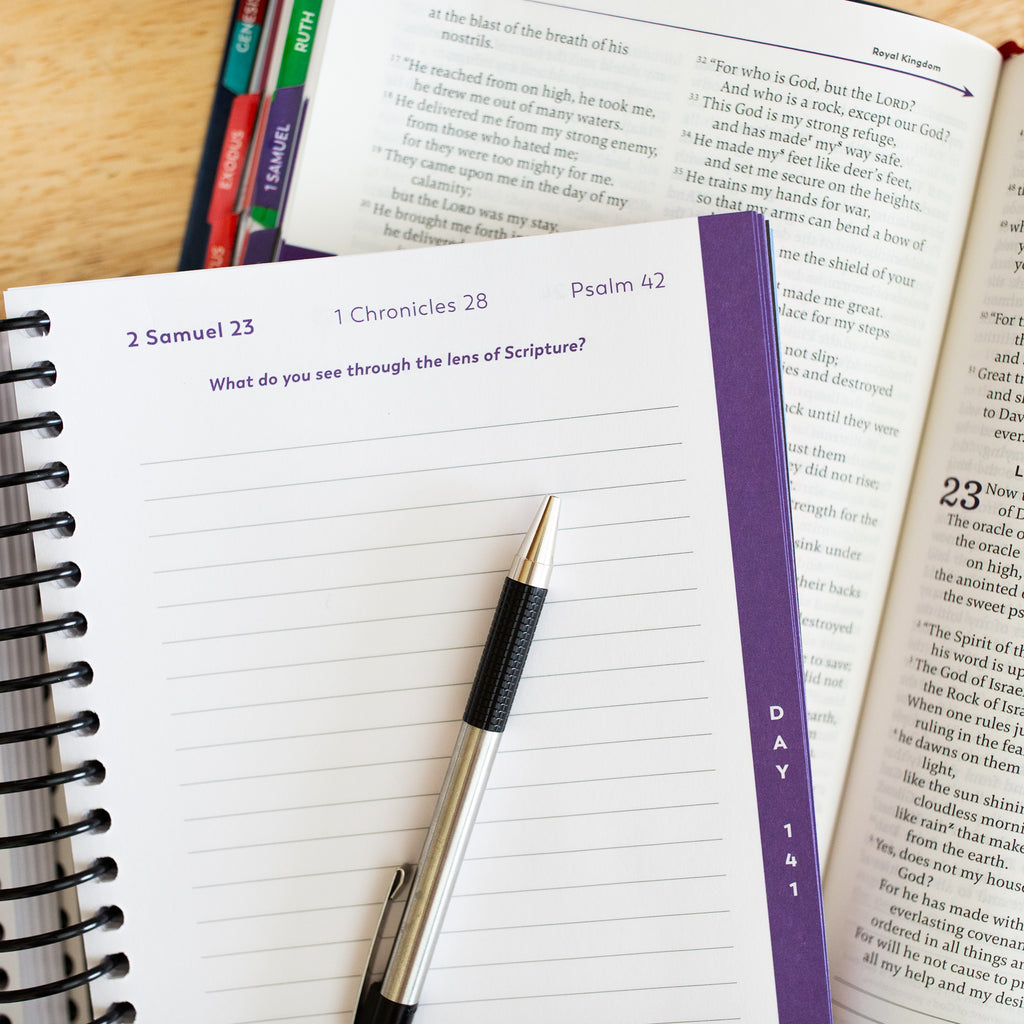 GENESIS
EXODUS
US
RUTH
1 SAMUEL
at the blast of the breath of his
nostrils.
17 "He reached from on high, he took me,
he drew me out of many waters.
18 He delivered me from my strong enemy,
from those who hated me;
for they were too mighty for me.
19 They came upon me in the day of my
calamity;
but the LORD was my stay.
20 He brought me forth
he delivered
Royal Kingdom
32 "For who is God, but the LORD?
And who is a rock, except our God?
33 This God is my strong refuge,
and has made r my s way safe.
34 He made my s feet like deer's feet,
and set me secure on the heights.
35 He trains my hands for war,
so that my arms can bend a bow of
me the shield of your
made me great.
place for my steps
not slip;
ies and destroyed
ack until they were
ust them
ey did not rise;
trength for the
sink under
their backs
destroyed
to save;
did not
earth,
2 Samuel 23
1 Chronicles 28
Psalm 42
What do you see through the lens of Scripture?
DAY 141
48
49
50 "For t
th
and
51 Great tr
and s
to Dav
ever.
L
23 Now
of D
The oracle o
the oracle
on high,
the anointed
the sweet ps
2 "The Spirit of th
his word is up
3 The God of Israe
the Rock of Isra
When one rules ju
ruling in the fea
4 he dawns on them
light,
like the sun shinin
cloudless morni
like rain z that make
from the earth.
5 "Yes, does not my house
God?
For he has made with
everlasting covenan
ordered in all things an
For will he not cause to pr
all my help and my desi